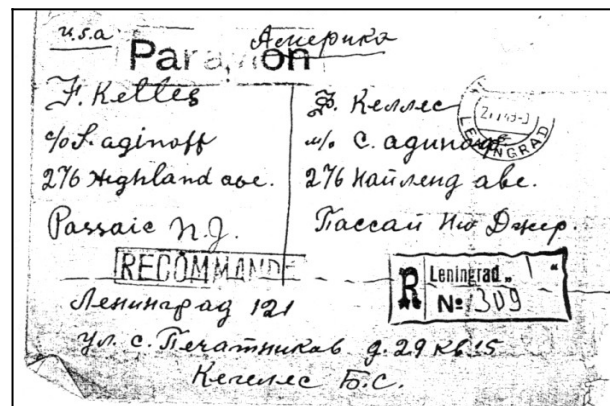 u.s.a Америка
Par avion
F. Kelles
c/o S. aginoff
276 Highland ave.
Passaic N.J.
Ф. Келлес
и/о С. агиноф
276 Найленд аве.
Пассаи Ню Джер.
LENINGRAD
RECOMMANDÉ
R Leningrad „ 1 “
№ 309
Ленинград 121
ул. С. Печатников д. 29 кв. 15
Кегелес Б.С.